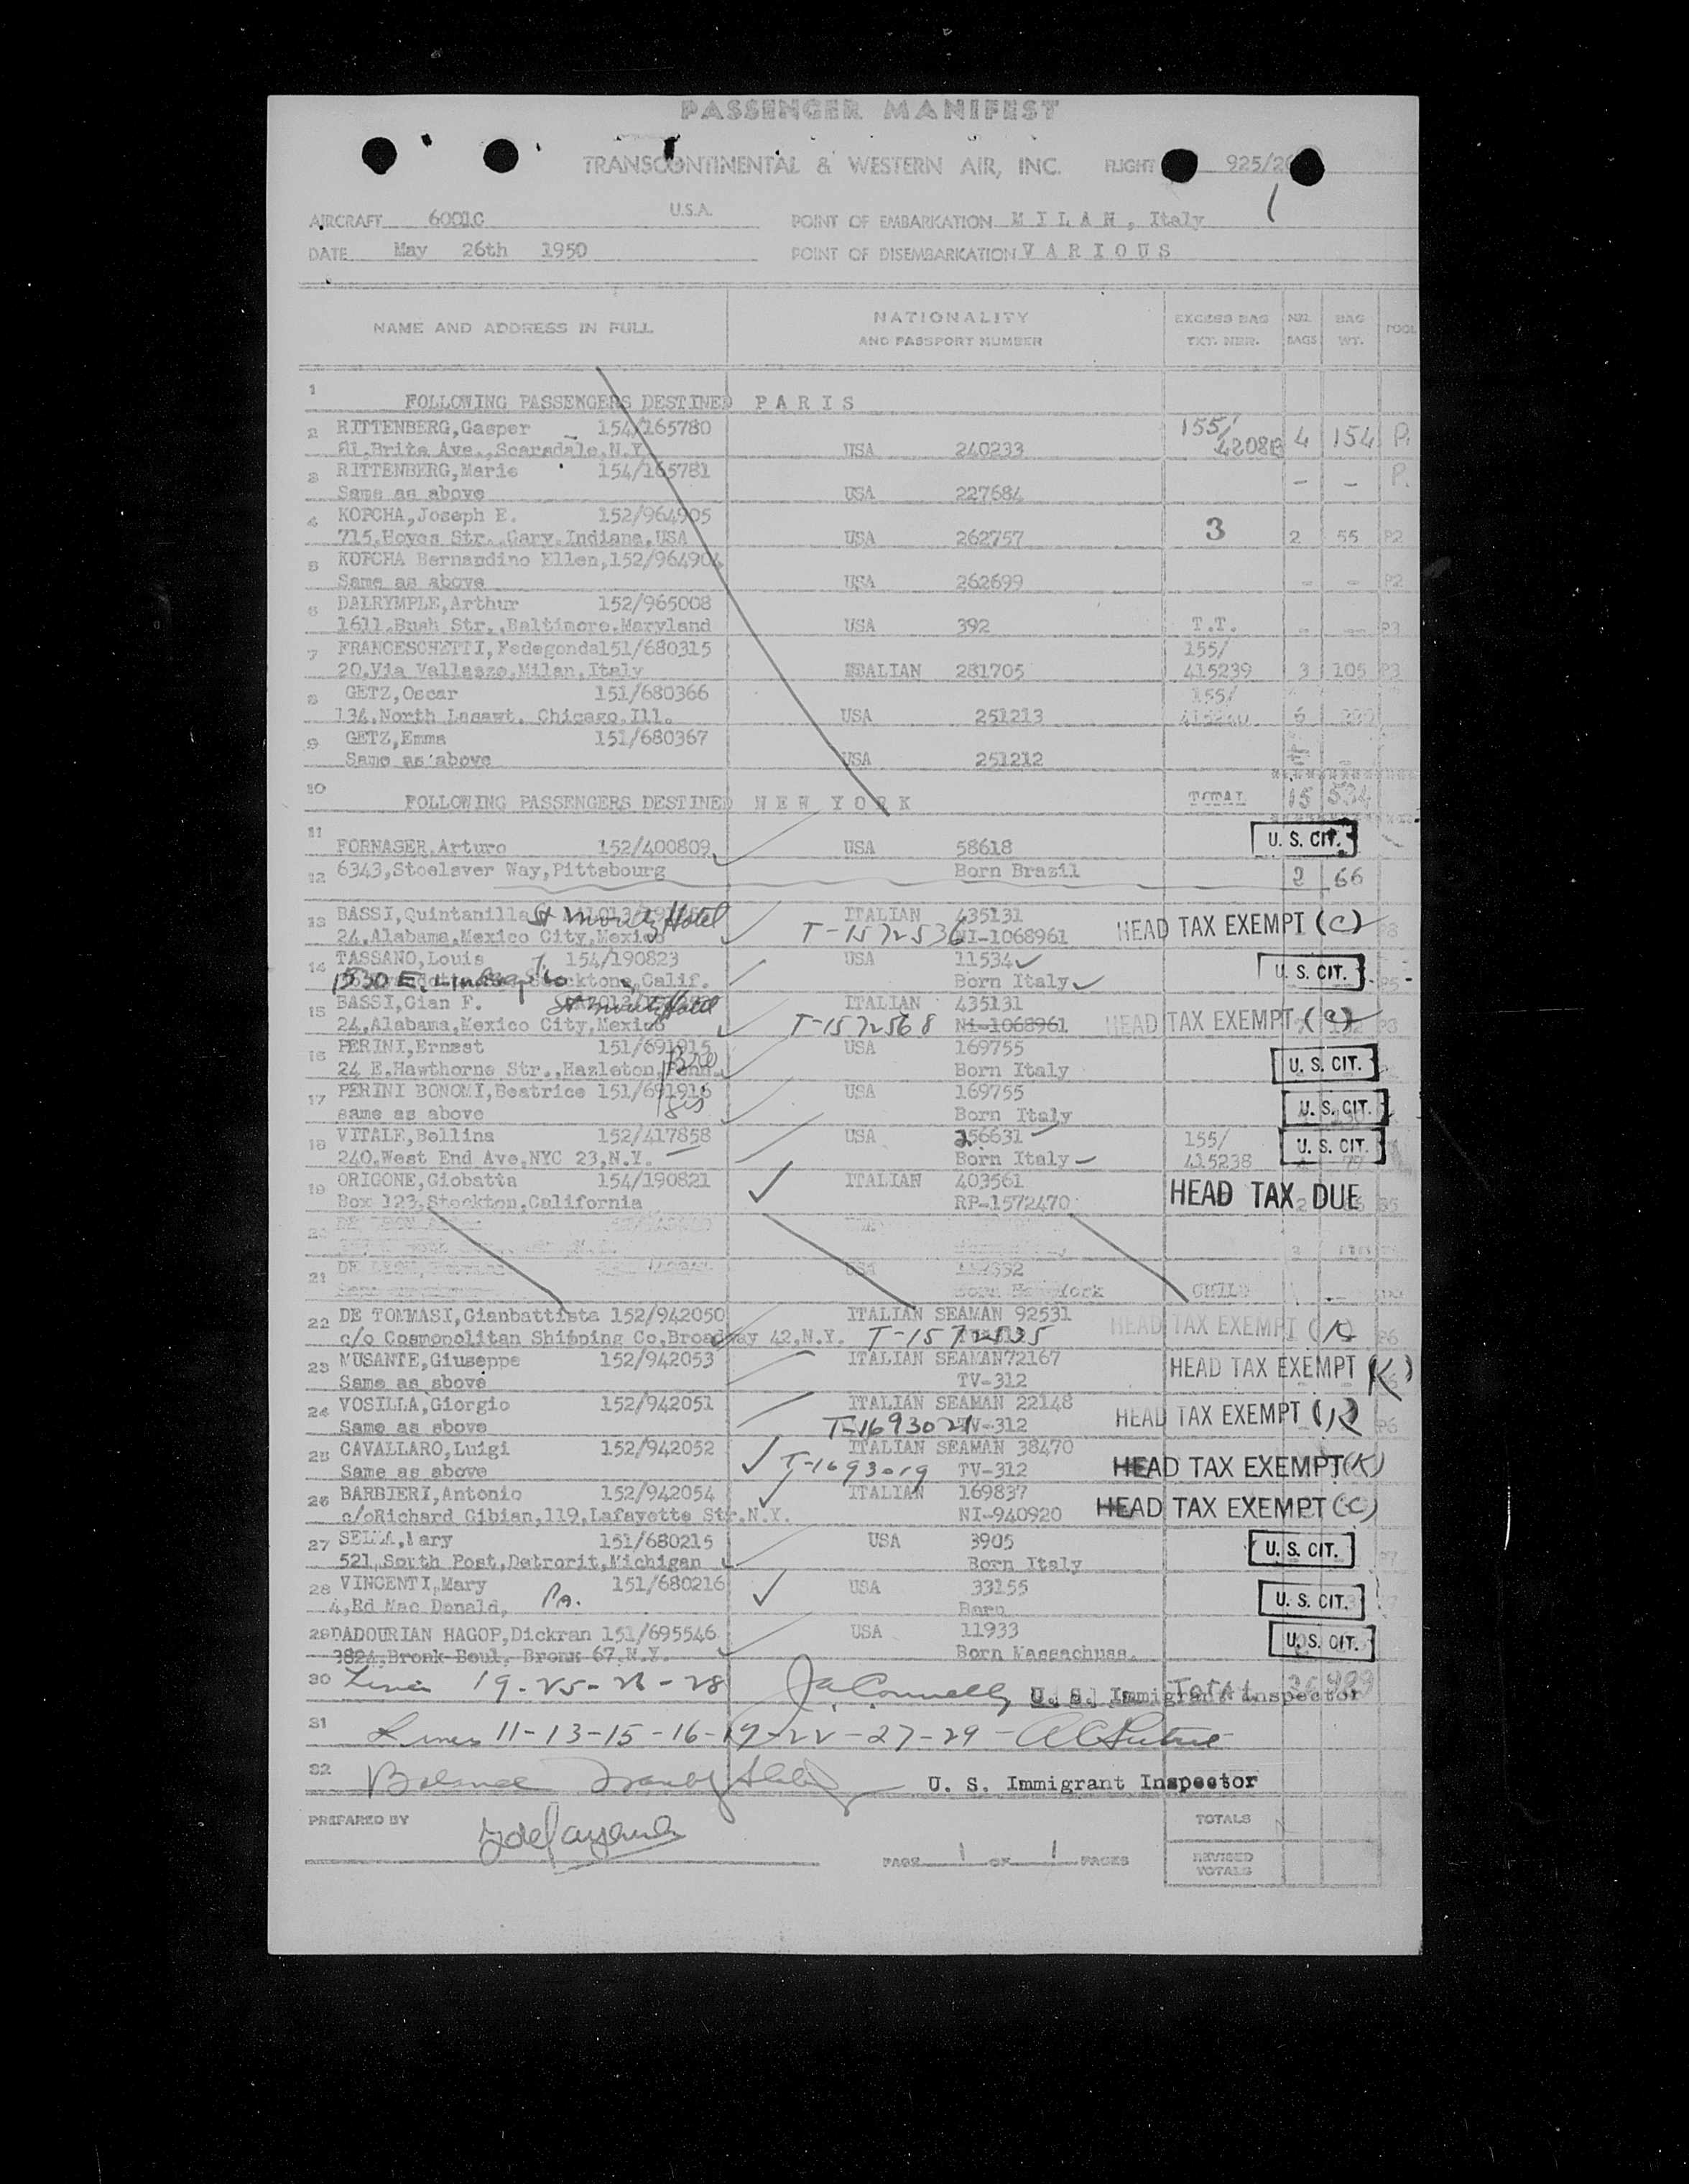 PASSENGER MANIFEST
TRANSCONTINENTAL & WESTERN AIR, INC. FLIGHT 925/26
AIRCRAFT 6001C U.S.A. POINT OF EMBARKATION M I L A N , Italy
DATE May 26th 1950 POINT OF DISEMBARKATION V A R I O U S
NAME AND ADDRESS IN FULL NATIONALITY AND PASSPORT NUMBER EXCESS BAG TKT. NBR. NBR. BAGS BAG WT. POOL
1 FOLLOWING PASSENGERS DESTINED P A R I S
2 RITTENBERG,Gasper 154/165780 155/
81,Brite Ave.,Scarsdale,N.Y. USA 240233 4 154 P.
3 RITTENBERG,Marie 154/165781
Same as above USA 227684 - - P.
4 KOPCHA,Joseph E. 152/964905 3
715,Hoyes Str.,Gary,Indiana,USA USA 262757 2 55 P2
5 KOPCHA Bernardino Ellen,152/964904
Same as above USA 262699 - - P2
6 DALRYMPLE,Arthur 152/965008
1611,Bush Str.,Baltimore,Maryland USA 392 T.T. - - P3
7 FRANCESCHETTI,Fedegonda151/680315 155/
20,Via Vallazze,Milan,Italy ITALIAN 281705 415239 3 105 P3
8 GETZ,Oscar 151/680366 155/
134,North Lasawt. Chicago,Ill. USA 251213 415240 6
9 GETZ,Emma 151/680367
Same as above USA 251212
10 FOLLOWING PASSENGERS DESTINED N E W Y O R K TOTAL 15 534
11 FORNASER,Arturo 152/400809 USA 58618 U. S. CIT.
12 6343,Stoelsver Way,Pittsbourg Born Brazil 2 66
13 BASSI,Quintanilla St Moritz Hotel ITALIAN 435131
24,Alabama,Mexico City,Mexico T-1572536 NI-1068961 HEAD TAX EXEMPT (C)
14 TASSANO,Louis 154/190823 USA 11534
1530 E. Stockton,Calif. Born Italy U. S. CIT.
15 BASSI,Gian F. St Moritz Hotel ITALIAN 435131
24,Alabama,Mexico City,Mexico T-1572568 NI-1068961 HEAD TAX EXEMPT (C)
16 PERINI,Ernest 151/691915 USA 169755
24 E.Hawthorne Str.,Hazleton,Penn. Born Italy U. S. CIT.
17 PERINI BONOMI,Beatrice 151/691916 USA 169755
same as above Born Italy U. S. CIT.
18 VITALE,Bellina 152/417858 USA 256631 155/
240,West End Ave,NYC 23,N.Y. Born Italy 415238 U. S. CIT.
19 ORIGONE,Giobatta 154/190821 ITALIAN 403561
Box 123,Stockton,California RP-1572470 HEAD TAX DUE
21 DE LEON, USA
Born New York CHILD
22 DE TOMMASI,Gianbattista 152/942050 ITALIAN SEAMAN 92531
c/o Cosmopolitan Shibping Co,Broadway 42,N.Y. T-1572535 HEAD TAX EXEMPT (K) P6
23 MUSANTE,Giuseppe 152/942053 ITALIAN SEAMAN72167
Same as above TV-312 HEAD TAX EXEMPT (K)
24 VOSILLA,Giorgio 152/942051 ITALIAN SEAMAN 22148
Same as above T-1693021 TV-312 HEAD TAX EXEMPT (K) P6
25 CAVALLARO,Luigi 152/942052 ITALIAN SEAMAN 38470
Same as above T-1693019 TV-312 HEAD TAX EXEMPT (K)
26 BARBIERI,Antonio 152/942054 ITALIAN 169837
c/oRichard Gibian,119,Lafayette Str.N.Y. NI-940920 HEAD TAX EXEMPT (C)
27 SELLA,Mary 151/680215 USA 3905
521,South Post,Detrorit,Michigan Born Italy U. S. CIT.
28 VINCENTI,Mary 151/680216 USA 33155
4,Rd Mac Donald, Pa. Born U. S. CIT.
29 DADOURIAN HAGOP,Dickran 151/695546 USA 11933
3824,Bronk Boul. Bronx 67,N.Y. Born Massachuss. U. S. CIT.
30 Lines 19-25-26-28 U. S. Immigrant Inspector TOTAL
31 Lines 11-13-15-16-19-22-27-29
32 Balance U. S. Immigrant Inspector
PREPARED BY TOTALS
PAGE 1 OF 1 PAGES REVISED TOTALS